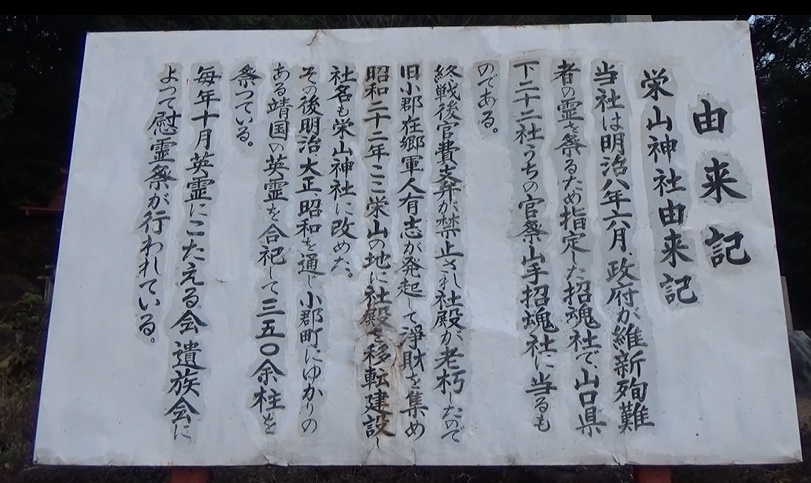 由来記
栄山神社由来記
当社は明治八年六月、政府が維新殉難
者の霊を祭るため指定した招魂社で、山口県
下二十二社うちの官祭山手招魂社に当るも
のである。
終戦後官費支弁が禁止され社殿が老朽したので
旧小郡在郷軍人有志が発起して浄財を集め
昭和二十二年ここ栄山の地に社殿を移転建設し
社名も栄山神社に改めた、
その後明治、大正、昭和を通し小郡町にゆかりの
ある靖国の英霊を合祀して三五〇余柱を
祭っている。
毎年十月英霊にこたえる会遺族会に
よって慰霊祭が行われている。